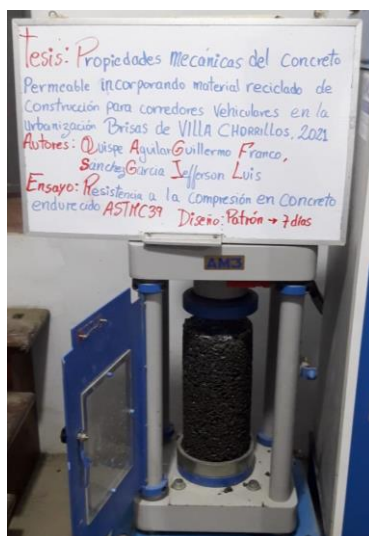 Tesis: Propiedades Mecánicas del Concreto
Permeable incorporando material reciclado de
Construcción para corredores Vehiculares en la
Urbanización Brisas de VILLA CHORRILLOS, 2021
Autores: Quispe Aguilar Guillermo Franco,
Sanchez Garcia Jefferson Luis
Ensayo: Resistencia a la Compresión en Concreto
endurecido ASTMC39 Diseño: Patrón → 7 días
AM3